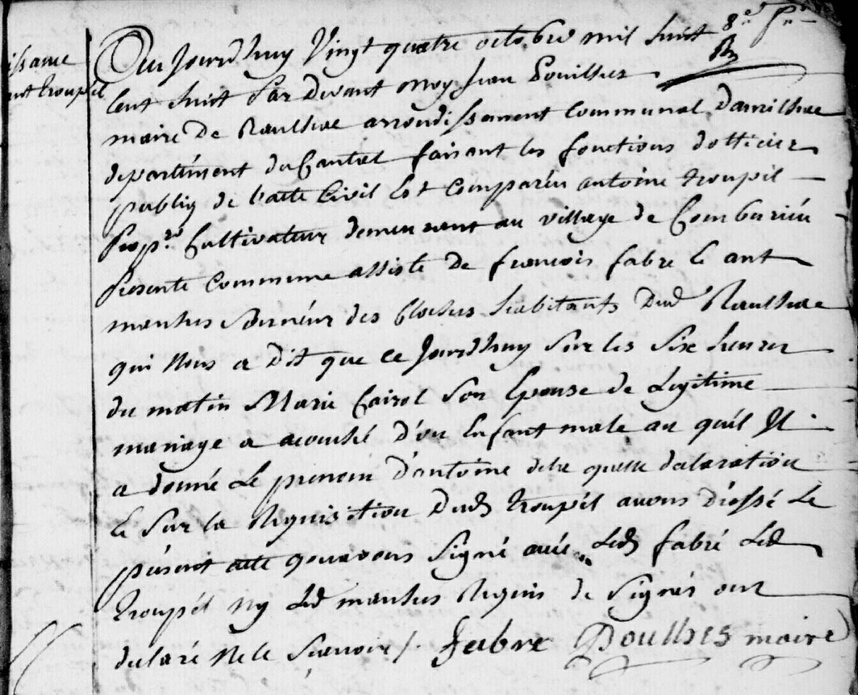 issance
ant troupel
Du jourdhuy Vingt quatre octobre mil huit
Cent huit Par Devant Moy Jean Poulhes
maire De Raulhac arrondissement Communal Daurilhac
departement du Cantal faisant les fonctions dofficier
publiq de letat Civil Est Comparëu antoine troupel
Prop.re Cultivateur demeurant au village de
Presente Commune assisté De francois fabre Et ant
manhes Sonneur des Cloches habitants Dud Raulhac
qui Nous a Dit que Ce Jourdhuy Sur les Six heures
du matin Marie Cairol Son Epouse de Legitime
mariage a acouché D'un Enfant male au quel Il
a donné Le prenom D'antoine de la quelle declaration
Et Sur la Requisition Dud troupel avons Dressé Le
présent acte qu'avons Signé avéc Led fabré Led
troupél Ny Led manhes Requis de Signér ont
declaré Ne le Scavoir /. fabre Poulhes maire